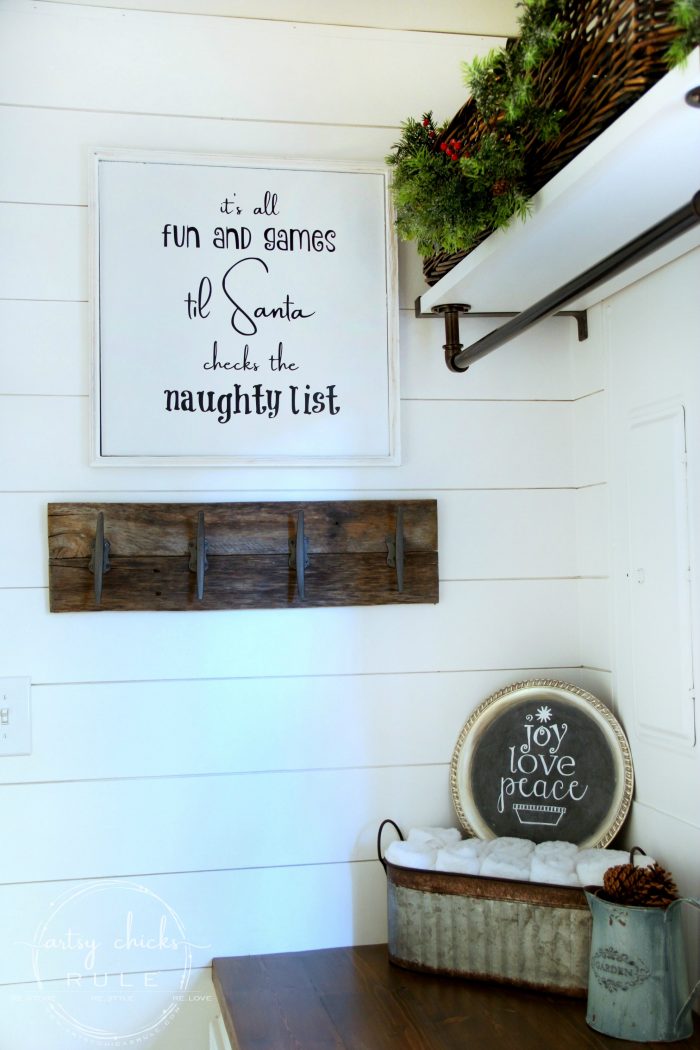 it's all
fun and games
til Santa
checks the
naughty list
joy
love
peace
GARDEN
artsy chicks
RULE
RE.STORE RE.STYLE RE.LOVE